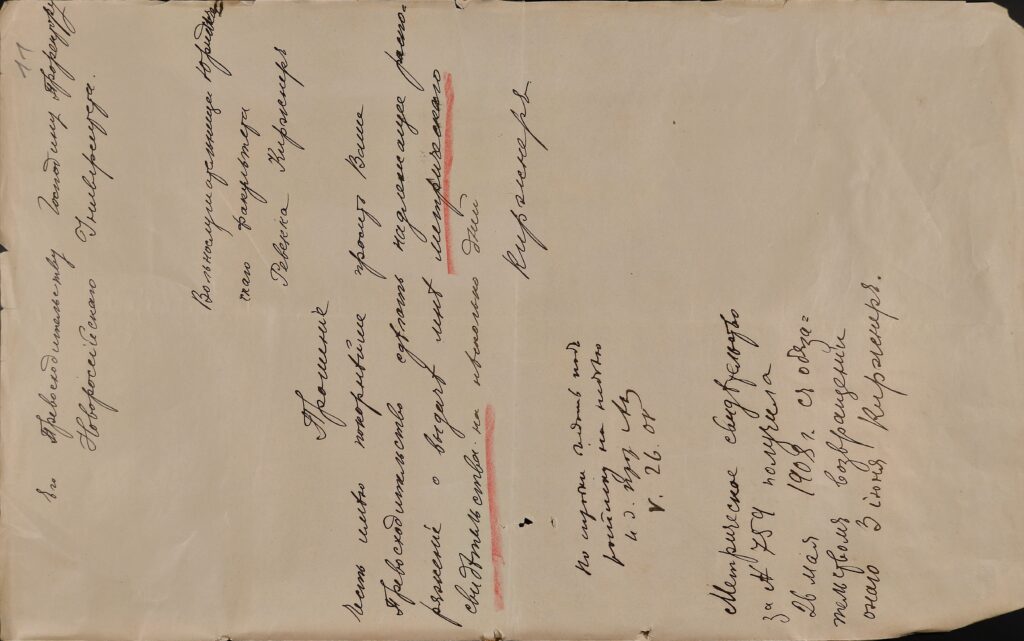 11
Его Превосходительству Господину Проректору
Новоросійскаго Университета.
Вольнослушательницы Юридиче
скаго факультета
Ревекка Киржнеръ
Прошеніе
Честь имѣю покорнѣйше просить Ваше
Превосходительство сдѣлать надлежащее распо-
ряженіе о выдачѣ мнѣ метрическаго
свидѣтельства на нѣсколько дней
Киржнеръ
выдать подъ
росписку на недѣлю
и. д.
V. 26. 08
Метрическое свидѣтельство
за № 759 получила
26 мая 1908 г. съ обяза=
тельствомъ возвращенія
онаго 3 іюня Киржнеръ.